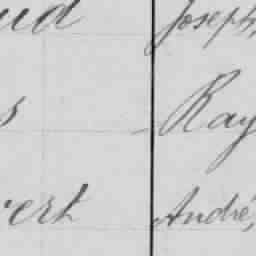 ud Joseph,
s Ray
vert André,